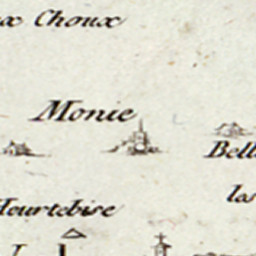 x Choux
Monie
Bell
Heurtebise
las